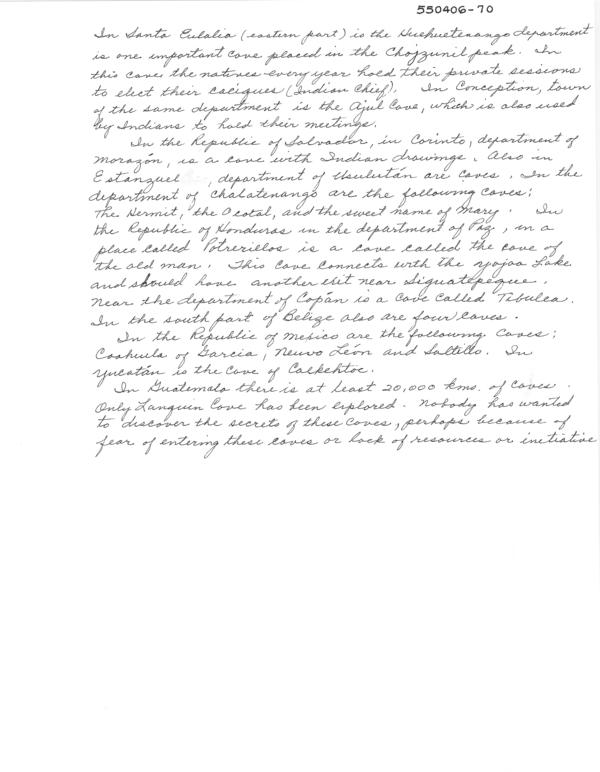 550406-70
In Santa Eulalia (eastern part) is the Huehuetenango department
is one important cave placed in the Chojzunil peak. In
this cave the natives every year hold their private sessions
to elect their caciques (Indian Chief). In Conception, town
of the same department is the Ajul Cave, which is also used
by Indians to hold their meetings.
In the Republic of Salvador, in Corinto, department of
Morazón, is a cave with Indian drawings. Also in
Estanzuel , department of Usulután are caves. In the
department of Chalatenango are the following caves:
The Hermit, the Ocotal, and the sweet name of Mary. In
the Republic of Honduras in the department of Paz, in a
place called Potrerillos is a cave called the cave of
the old man. This cave connects with the Yojoa Lake
and should have another exit near Siguatepeque.
Near the department of Copán is a Cave called Tibulca.
In the south part of Belize also are four caves.
In the Republic of Mexico are the following Caves:
Coahuila of Garcia, Neuvo Léon and Saltillo. In
Yucatán is the Cave of Calkehtoc.
In Guatemala there is at least 20,000 kms. of caves.
Only Lanquin Cave has been explored. Nobody has wanted
to discover the secrets of these Caves, perhaps because of
fear of entering these caves or lack of resources or initiative